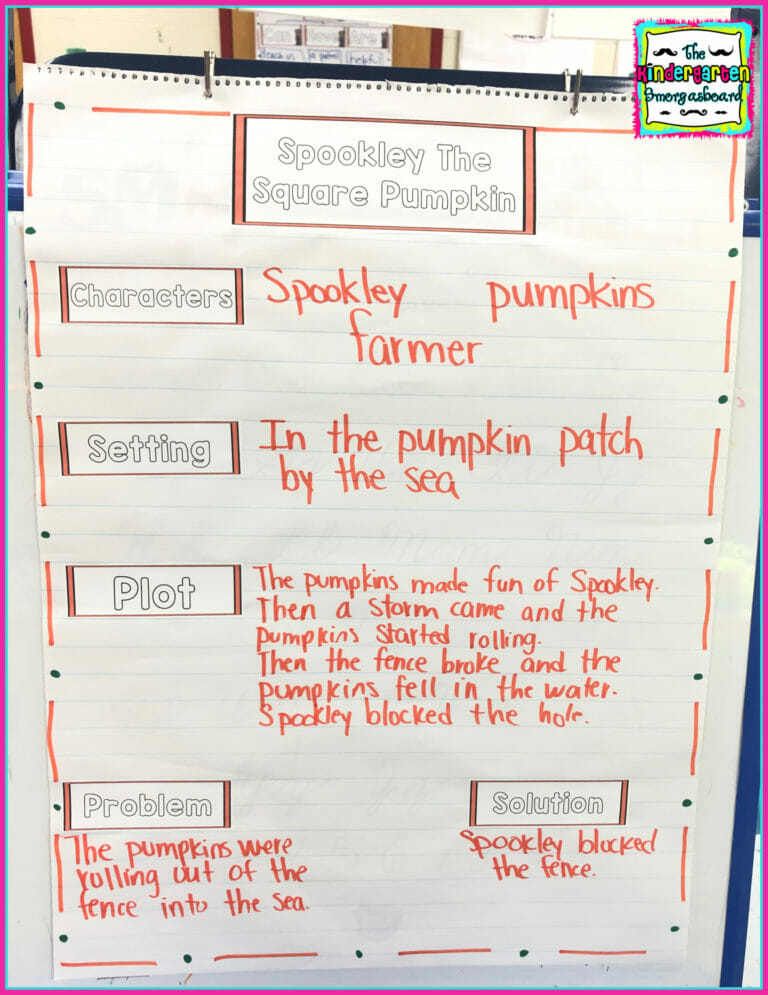 Can Have Are
teach us a patch helpful
The
Kindergarten
Smorgasboard
Spookley The
Square Pumpkin
Characters
Spookley pumpkins
farmer
Setting
In the pumpkin patch
by the sea
Plot
The pumpkins made fun of Spookley.
Then a storm came and the
pumpkins started rolling.
Then the fence broke and the
pumpkins fell in the water.
Spookley blocked the hole.
Problem
The pumpkins were
rolling out of the
fence into the sea.
Solution
Spookley blocked
the fence.